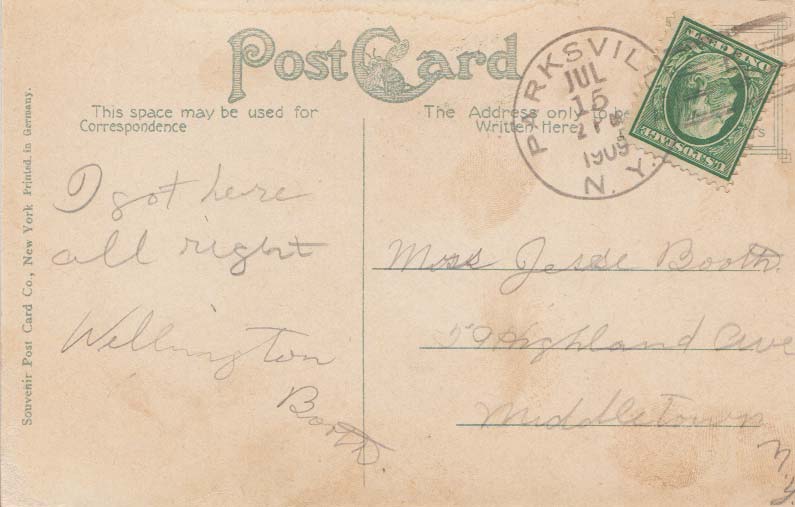 Post Card
This space may be used for
Correspondence
The Address only to be
Written Here
PARKSVILL
JUL
15
1909
N. Y.
ONE CENT
U.S. POSTAGE
I got here
all right
Wellington
Booth.
Miss Jesse Booth.
59 Highland Ave
Middletown
N.Y.
Souvenir Post Card Co., New York Printed in Germany.